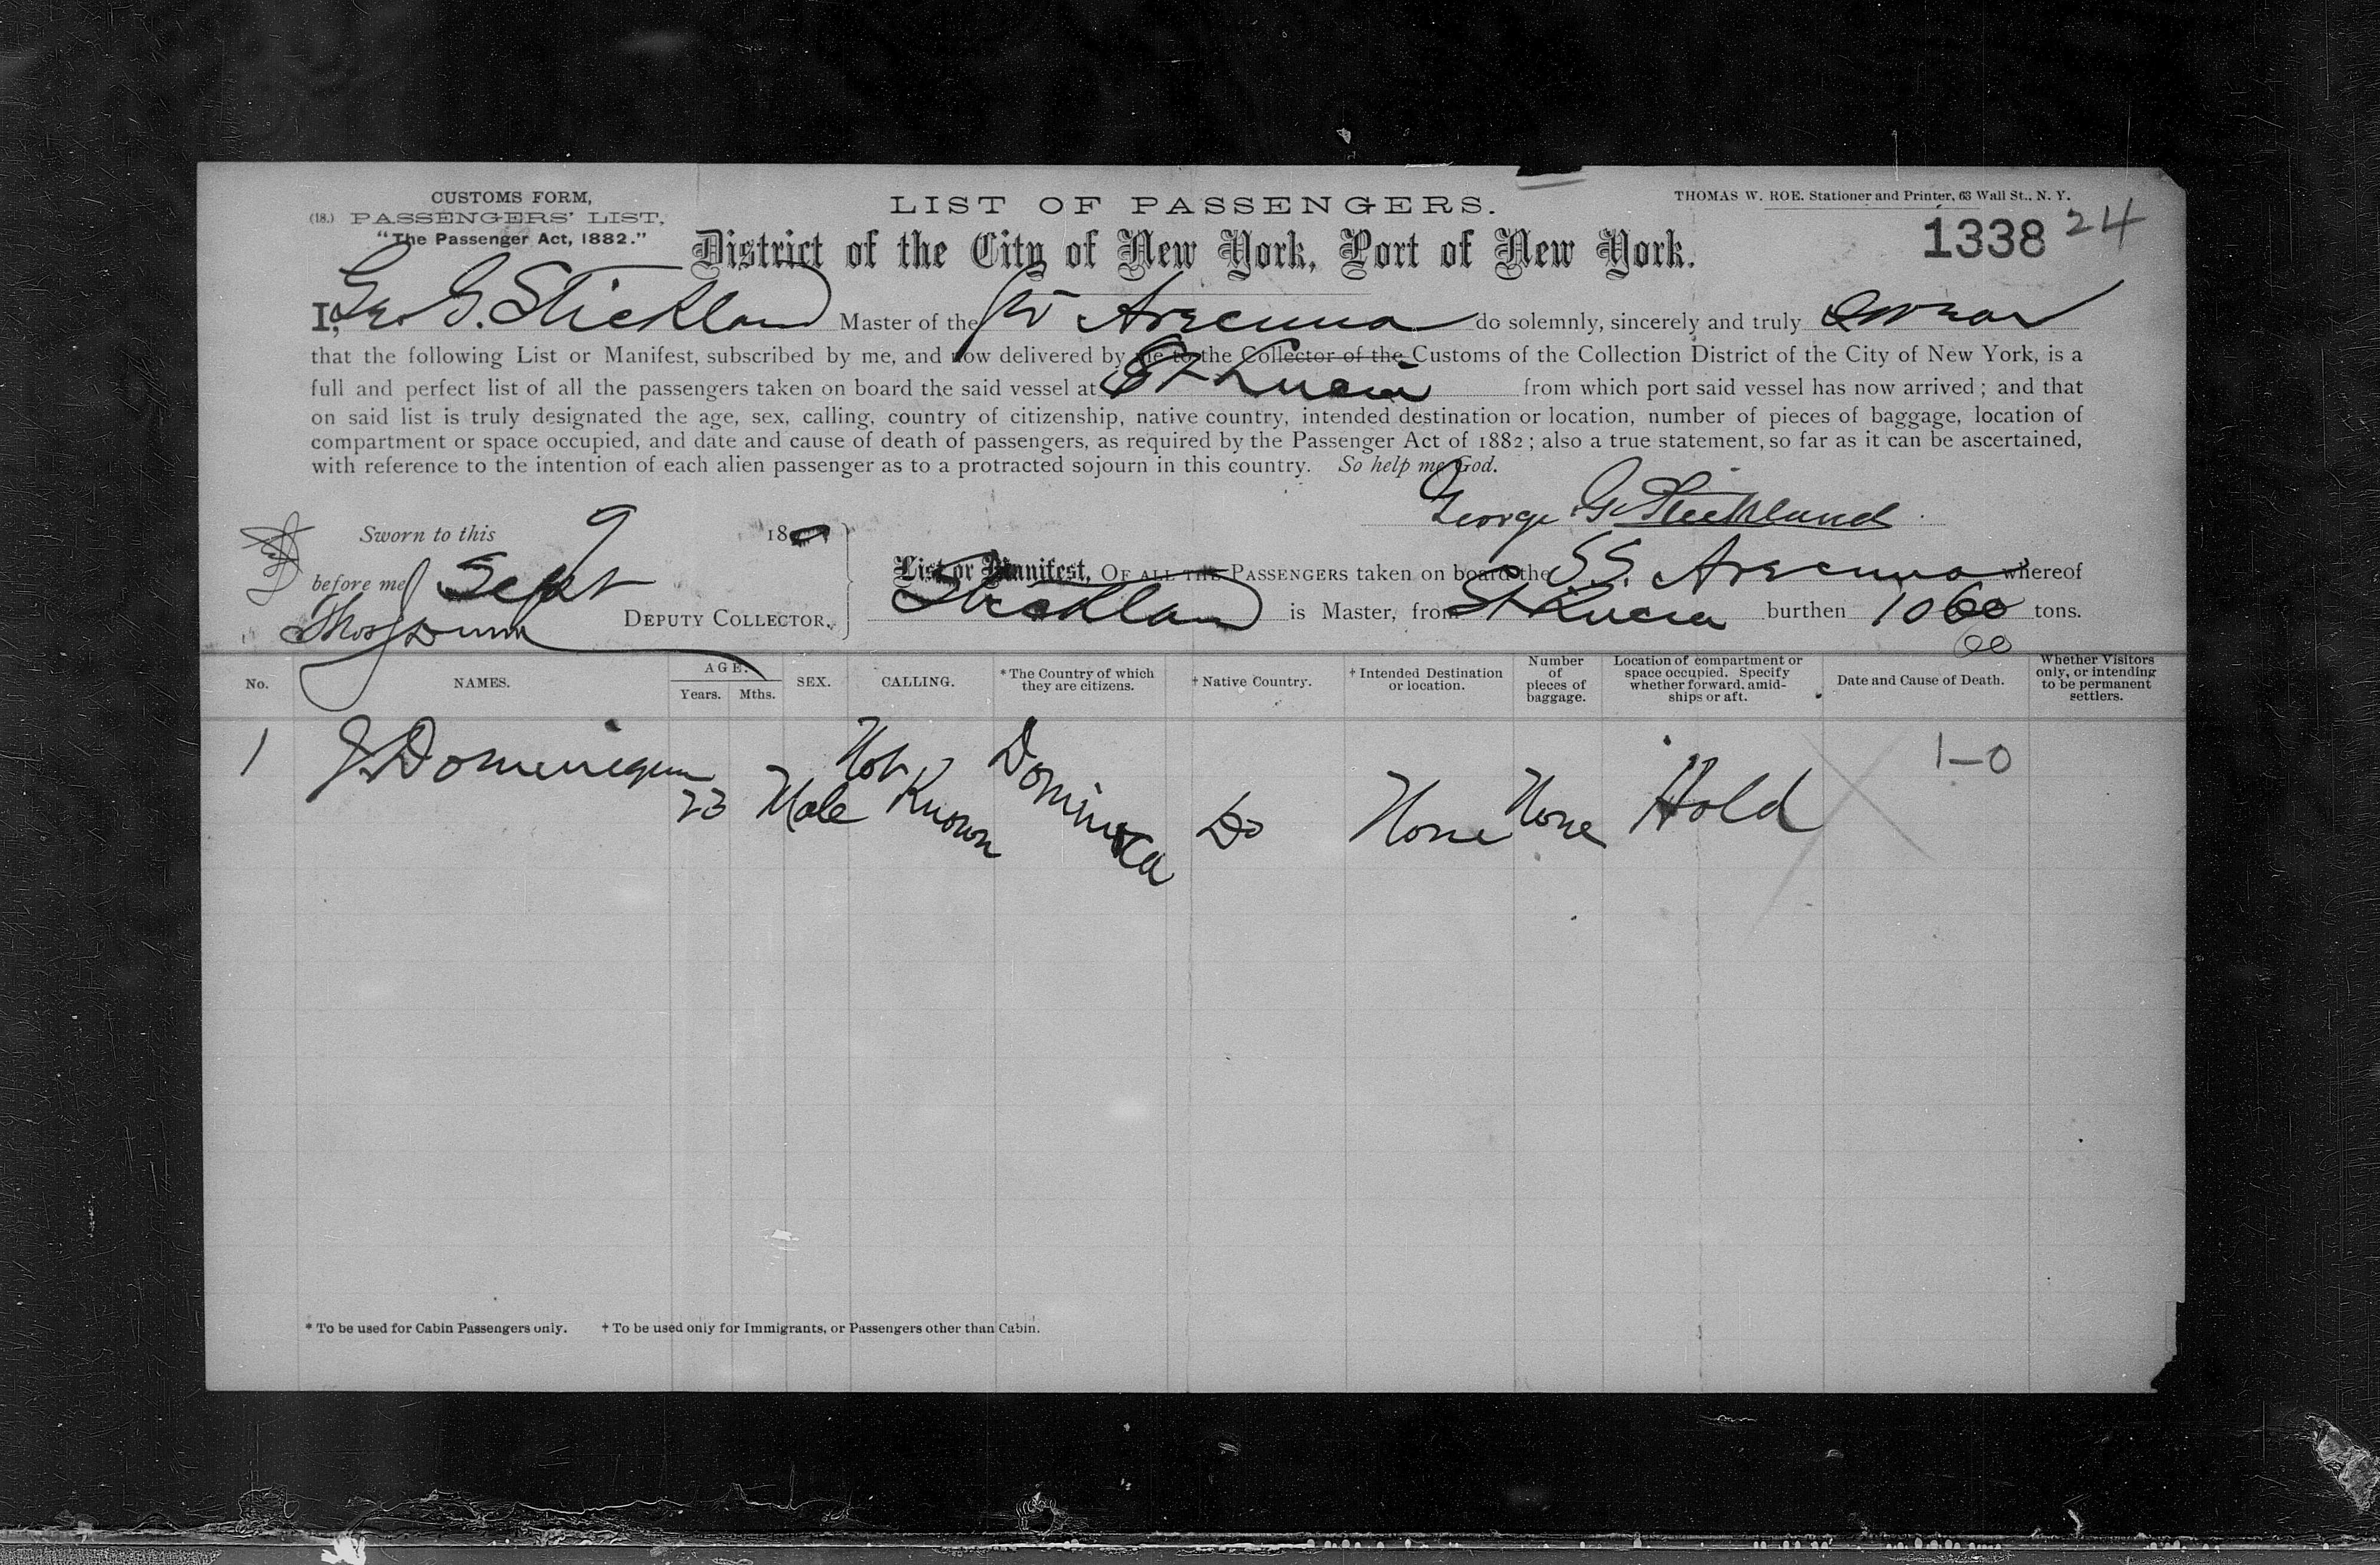 CUSTOMS FORM,
(18.) PASSENGERS' LIST,
"The Passenger Act, 1882."
LIST OF PASSENGERS.
THOMAS W. ROE. Stationer and Printer, 63 Wall St., N. Y.
District of the City of New York, Port of New York.
1338 24
I, Geo G. Strickland Master of the Avecenna do solemnly, sincerely and truly swear
that the following List or Manifest, subscribed by me, and now delivered by me to the Collector of the Customs of the Collection District of the City of New York, is a
full and perfect list of all the passengers taken on board the said vessel at St Lucia from which port said vessel has now arrived; and that
on said list is truly designated the age, sex, calling, country of citizenship, native country, intended destination or location, number of pieces of baggage, location of
compartment or space occupied, and date and cause of death of passengers, as required by the Passenger Act of 1882; also a true statement, so far as it can be ascertained,
with reference to the intention of each alien passenger as to a protracted sojourn in this country. So help me God.
George G. Strickland
Sworn to this 9 18
before me Sept
Thos J Dunn DEPUTY COLLECTOR.
List or Manifest, OF ALL THE PASSENGERS taken on board the SS. Avecenna whereof
Strickland is Master, from St Lucia burthen 1060 tons.
60
No. NAMES. AGE. Years. Mths. SEX. CALLING. *The Country of which they are citizens. † Native Country. † Intended Destination or location. Number of pieces of baggage. Location of compartment or space occupied. Specify whether forward, amidships or aft. Date and Cause of Death. Whether Visitors only, or intending to be permanent settlers.
1 J. Dominique 23 Male Not Known Dominica Do None None Hold 1-0
* To be used for Cabin Passengers only. † To be used only for Immigrants, or Passengers other than Cabin.